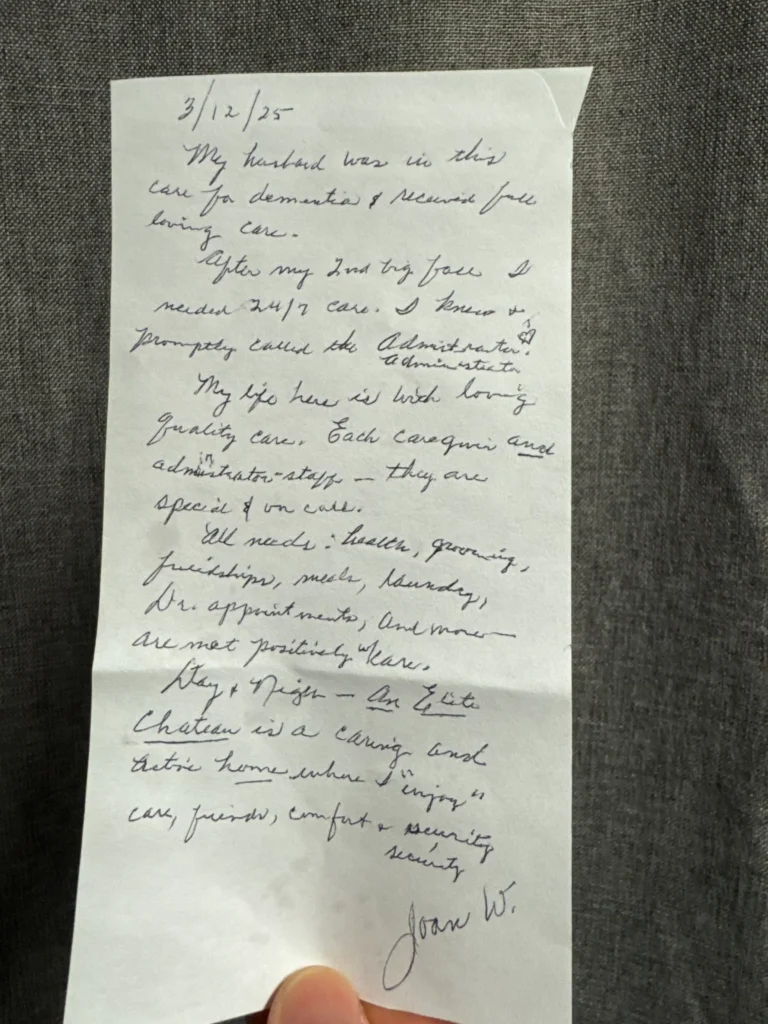 3/12/25
My husband was in this
care for dementia & received full
loving care.
After my 2nd big fall I
needed 24/7 care. I knew &
promptly called the Administrator.
administrator
My life here is with loving
quality care. Each caregiver and
administrator-staff – they are
special & on call.
All needs: health, grooming,
friendships, meals, laundry,
Dr. appointments, and more—
are met positively w/care.
Day & Night – An Elite
Chateau is a caring and
home where I "enjoy"
care, friends, comfort & security
security
Joan W.